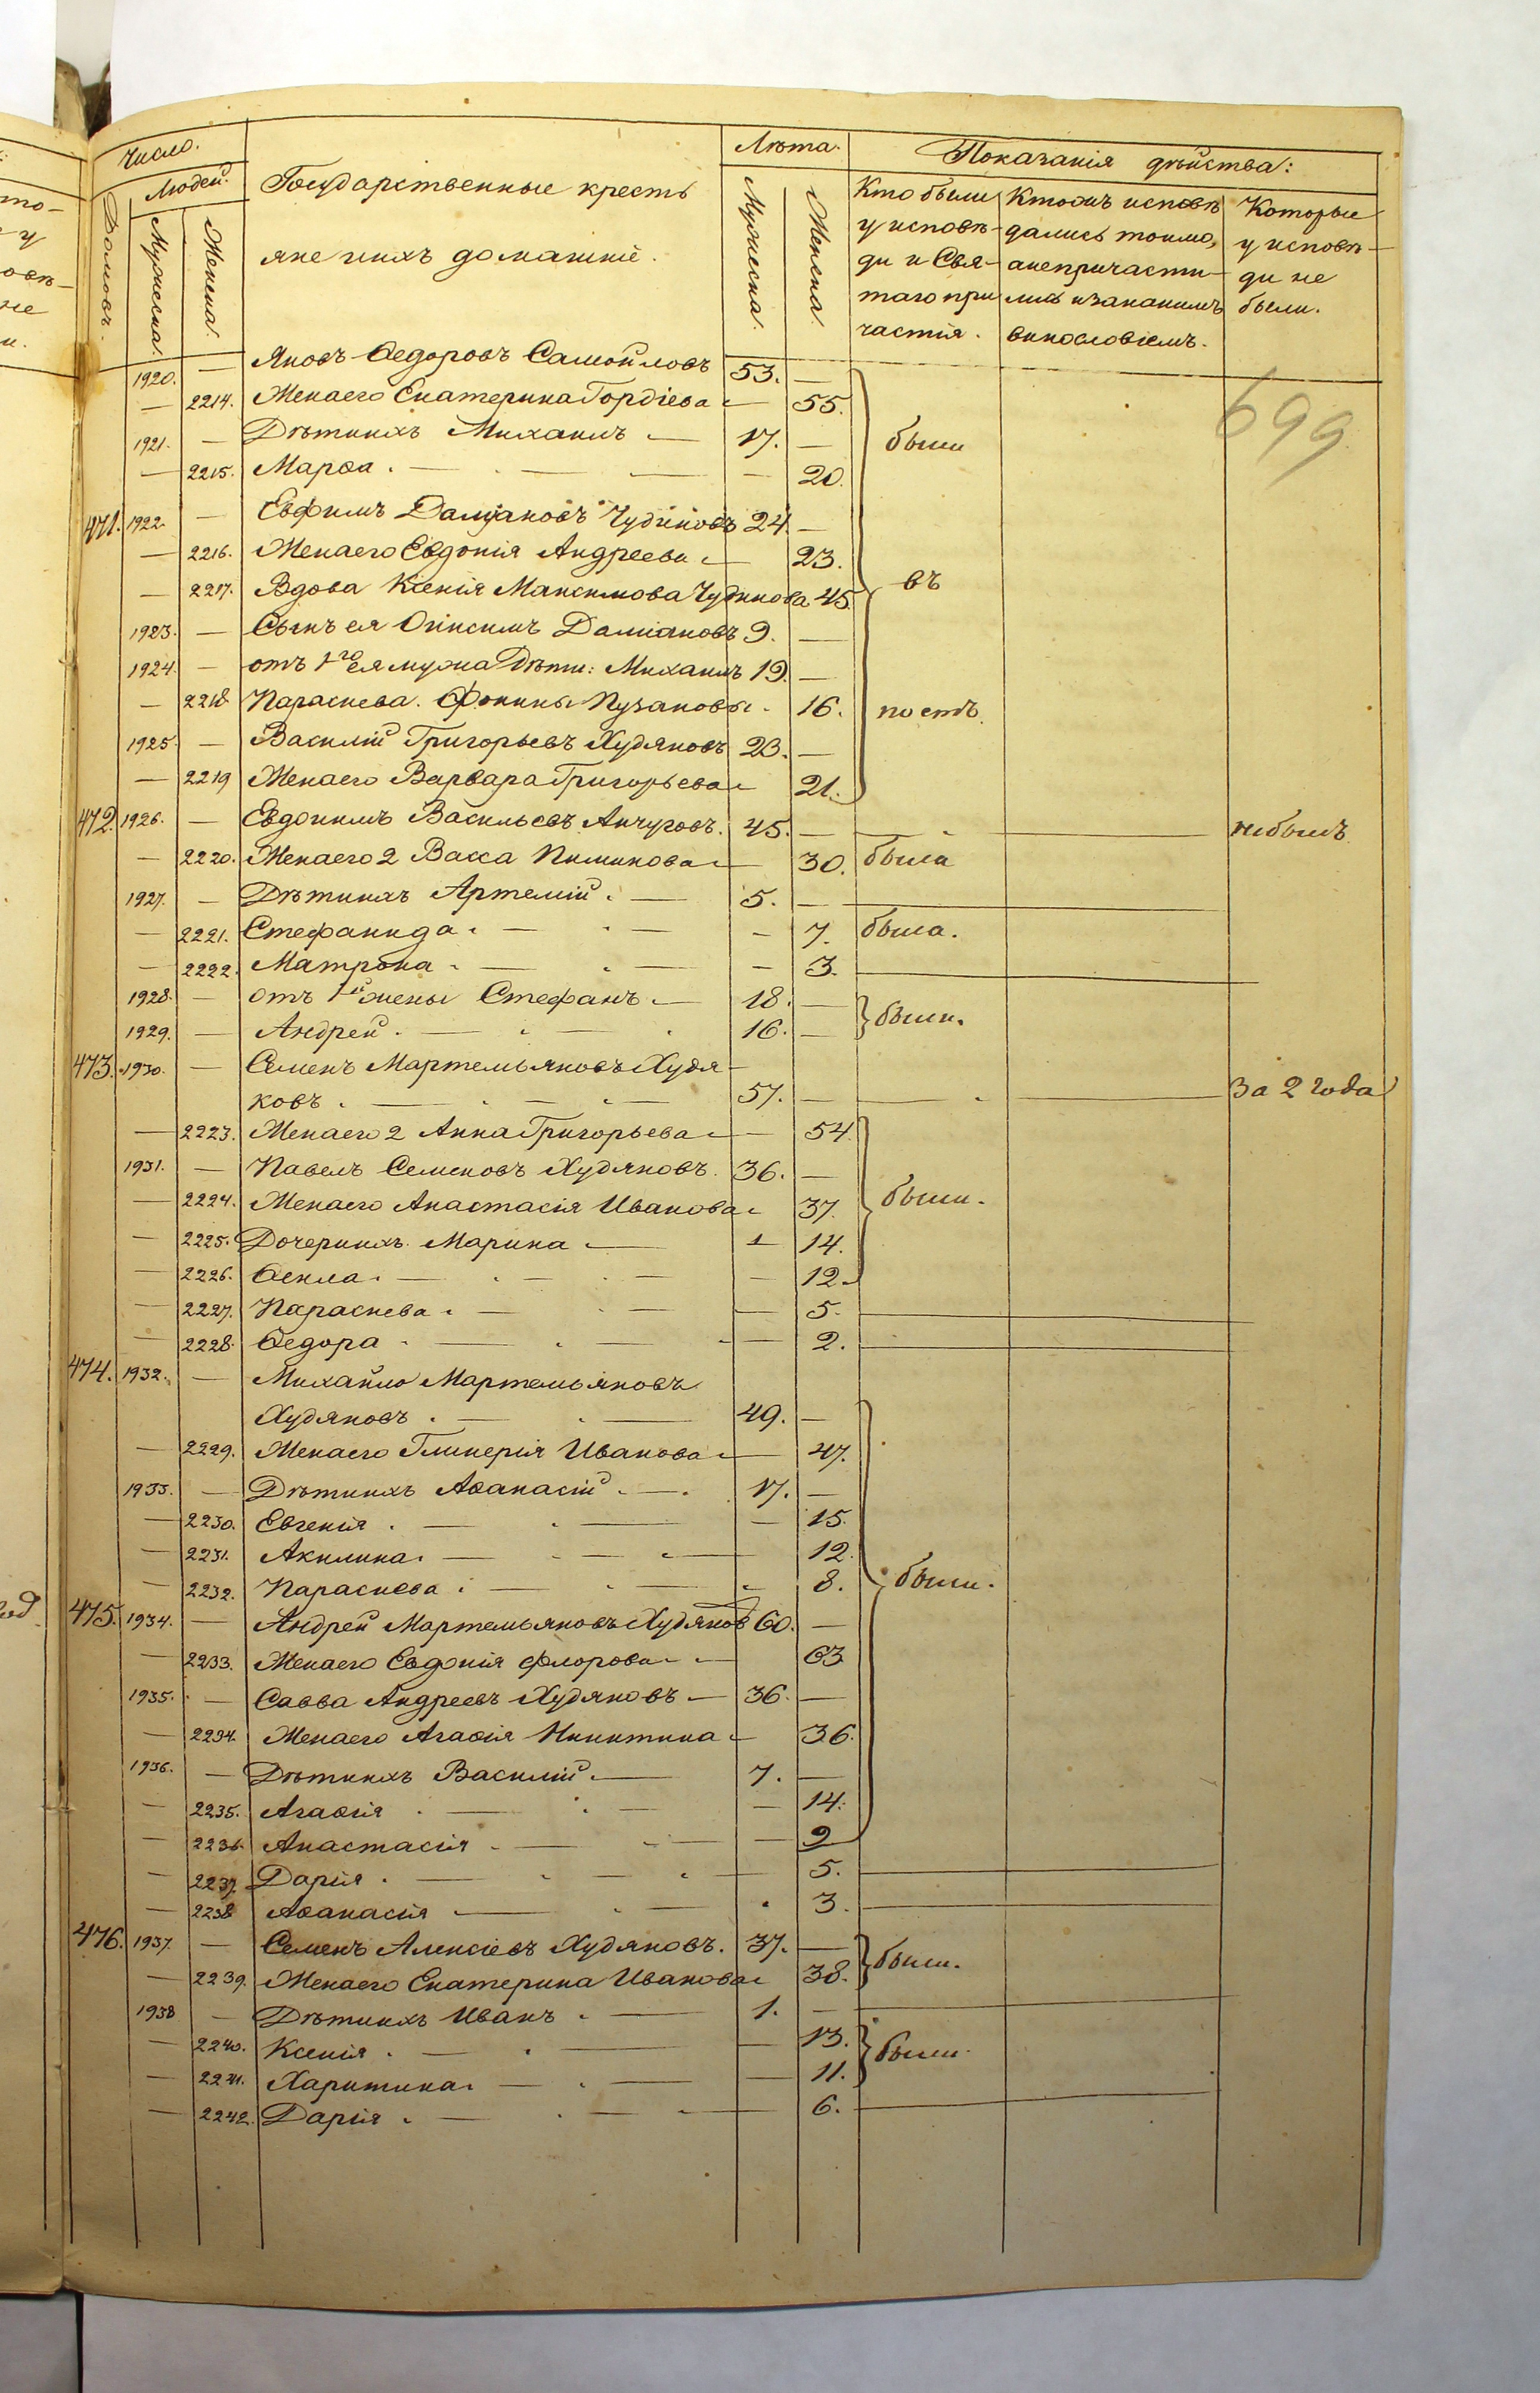 Число.
Людей.
Домовъ.
Мужеска.
Женска.
Государственные кресть
яне и ихъ домашніе.
Лѣта.
Мужеска.
Женска.
Показанія дѣйства:
Кто были
у исповѣ-
ди и Свя-
таго при
частія.
Кто жъ исповѣ
дались токмо,
а не причасти-
лись и за какимъ
винословіемъ.
Которые
у исповѣ-
ди не
были.
699
1920. — Яковъ Ѳедоровъ Самойловъ 53. —
— 2214. Жена его Екатерина Гордіева — 55.
1921. — Дѣти ихъ Михаилъ — 17. — были
— 2215. Марѳа. — — 20.
471. 1922. — Евфимъ Даміановъ Чудиновъ 24. —
— 2216. Жена его Евдокія Андреева — 23.
— 2217. Вдова Ксенія Максимова Чудинова 45. въ
1923. — Сынъ ея Онисимъ Даміановъ 9. —
1924. — отъ 1го ея мужа дѣти: Михаилъ 19. —
— 2218 Параскева. Фокины Пузановы. 16. постъ.
1925. — Василій Григорьевъ Худяковъ 23. —
— 2219 Жена его Варвара Григорьева — 21.
472. 1926. — Евдокимъ Васильевъ Анчуговъ. 45. — — не былъ
— 2220. Жена его 2 Васса Пиминова — 30. была
1927. — Дѣти ихъ Артемій. — 5. —
— 2221. Стефанида. — — 7. была.
— 2222. Матрона. — — 3.
1928. — отъ 1й жены Стефанъ. — 18. —
1929. — Андрей. — 16. — были.
473. 1930. — Семенъ Мартемьяновъ Худя-
ковъ. — 57. — — За 2 года
— 2223. Жена его 2 Анна Григорьева — 54.
1931. — Павелъ Семеновъ Худяковъ. 36. —
— 2224. Жена его Анастасія Иванова. 37. были.
— 2225. Дочери ихъ Марина — 14.
— 2226. Ѳекла. — — 12.
— 2227. Параскева. — — 5.
— 2228. Ѳедора. — — 2.
474. 1932. — Михайло Мартемьяновъ
Худяковъ. — 49. —
— 2229. Жена его Гликерія Иванова — 47.
1933. — Дѣти ихъ Аѳанасій. — 17. —
— 2230. Евгенія. — — 15.
— 2231. Акилина. — — 12.
— 2232. Параскева. — 8. были.
475. 1934. — Андрей Мартемьяновъ Худяковъ 60. —
— 2233. Жена его Евдокія Флорова. — 63
1935. — Савва Андреевъ Худяковъ — 36. —
— 2234. Жена его Агаѳія Никитина — 36.
1936. — Дѣти ихъ Василій. — 7. —
— 2235. Агаѳія. — — 14.
— 2236. Анастасія. — — 9
— 2237. Дарія. — 5.
— 2238 Аѳанасія — 3.
476. 1937. — Семенъ Алексіевъ Худяковъ. 37. —
— 2239. Жена его Екатерина Иванова. 38. были.
1938 — Дѣти ихъ Иванъ. — 1. —
— 2240. Ксенія. — — 13.
— 2241. Харитина. — — 11. были.
— 2242. Дарія. — 6.